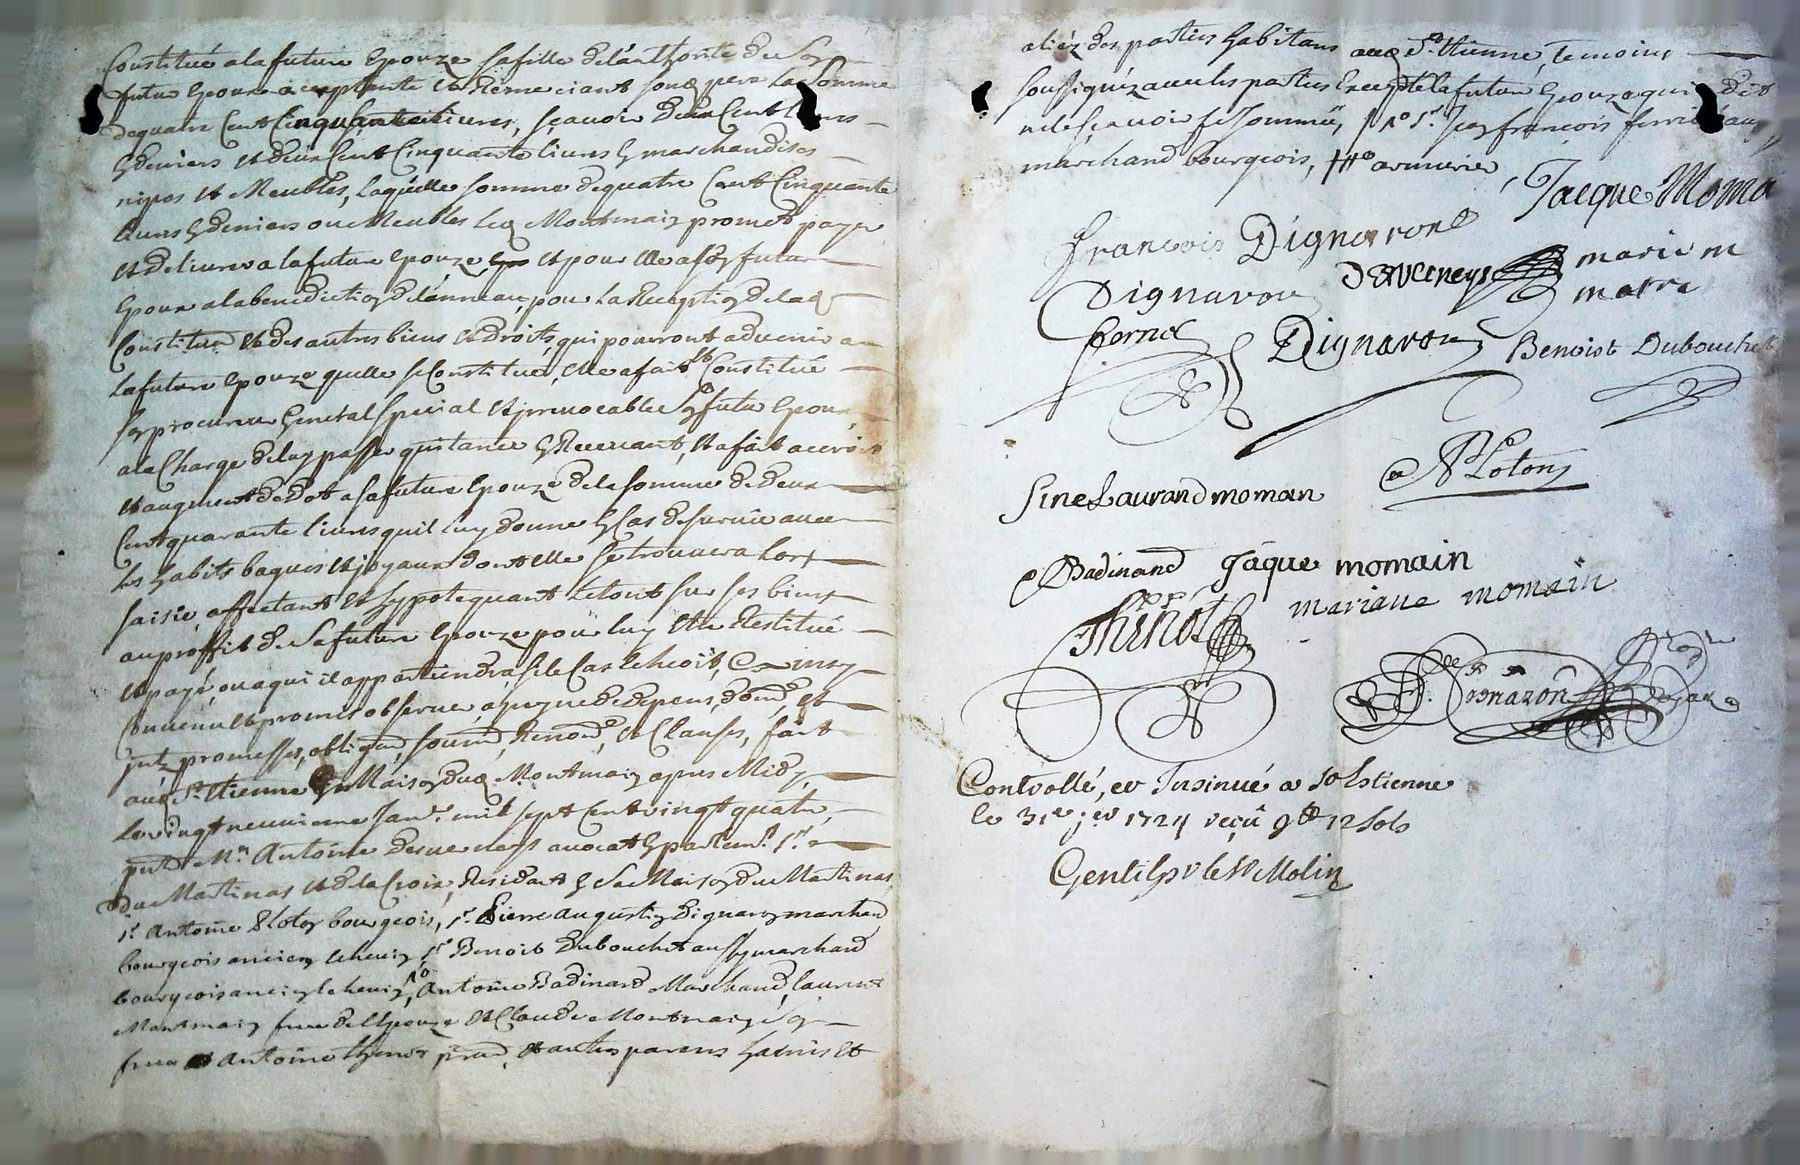 Constitué a la future Epouze sa fille de lauthorité du Sr
futur Epoux acceptante et Remerciant sond pere La Somme
de quatre Cent Cinquante livres, scavoir deux Cent livres
En deniers et deux Cent Cinquante livres En marchandises
nipes et Meubles, laquelle somme de quatre Cent Cinquante
livres En deniers ou Meubles Led Montmain promet payer
et delivrer a la future Epouze et pour elle a son futur
Epoux a la benediction de lanneau, pour La Reception de lad
Constitué et des autres biens et droits qui pourront advenir a
La future Epouze quelle se Constitue, elle a fait et Constitué
son procureur General special et irrevocable led futur Epoux
a la Charge de luy passer quitance En Recevant, et a fait accroit
et augment de dot a sa future Epouze de la somme de deux
Cent quarante livres quil luy donne En Cas de survie avec
les habits bagues et joyaux dont elle se trouvera lors
saisie, affectant et hypotequant le tout sur ses biens
au proffit de sa future Epouze pour luy etre Restitué
et payé, ou a qui il appartiendra si le Cas le heoit, Car insy
Convenu et promis observer, a peyne de depens, domd, et
jntz promesses, obligad, soumd, Renond, et Clauses, fait
aud St Etienne En Maison dud Montmain apres Midy
Le vingt neuvieme Janr mil sept Cent vingt quatre,
pntz Mr Antoine Desverneys avocat En parlemt Sr
du Martinas et de la Croix, Residant En Sa Maison du Martinas
sr Antoine Ploton bourgeois, sr Pierre augustin Dignaron marchand
bourgeois ancien echevin sr Benoit Dubouchet aussy marchand
bourgeois ancien echevin, Antoine Badinand Marchand, laurent
Montmain frere de lEpouze et Claude Montmain son
frere et Antoine thenot et autres parens hamis et
aliéz des parties habitans aud St Etienne, temoins
soussignéz avec les parties Excepté la future Epouze qui a dit
ne le scavoir de ce sommée, Sr Jean françois ferriol aussy
marchand bourgeois, armurier
Jacque Moma
francois Dignaron
Desverneys marie m
Dignaron matra
fornel Dignaron Benoist Dubouchet
Sine Laurand moman A Ploton
A Badinand Jaque momain
Thenot mariane momain
Controllé, et Insinué a St Estienne
le 31e jer 1724 reçû 9 lt 12 sols
Gentil pr le Sr Molin